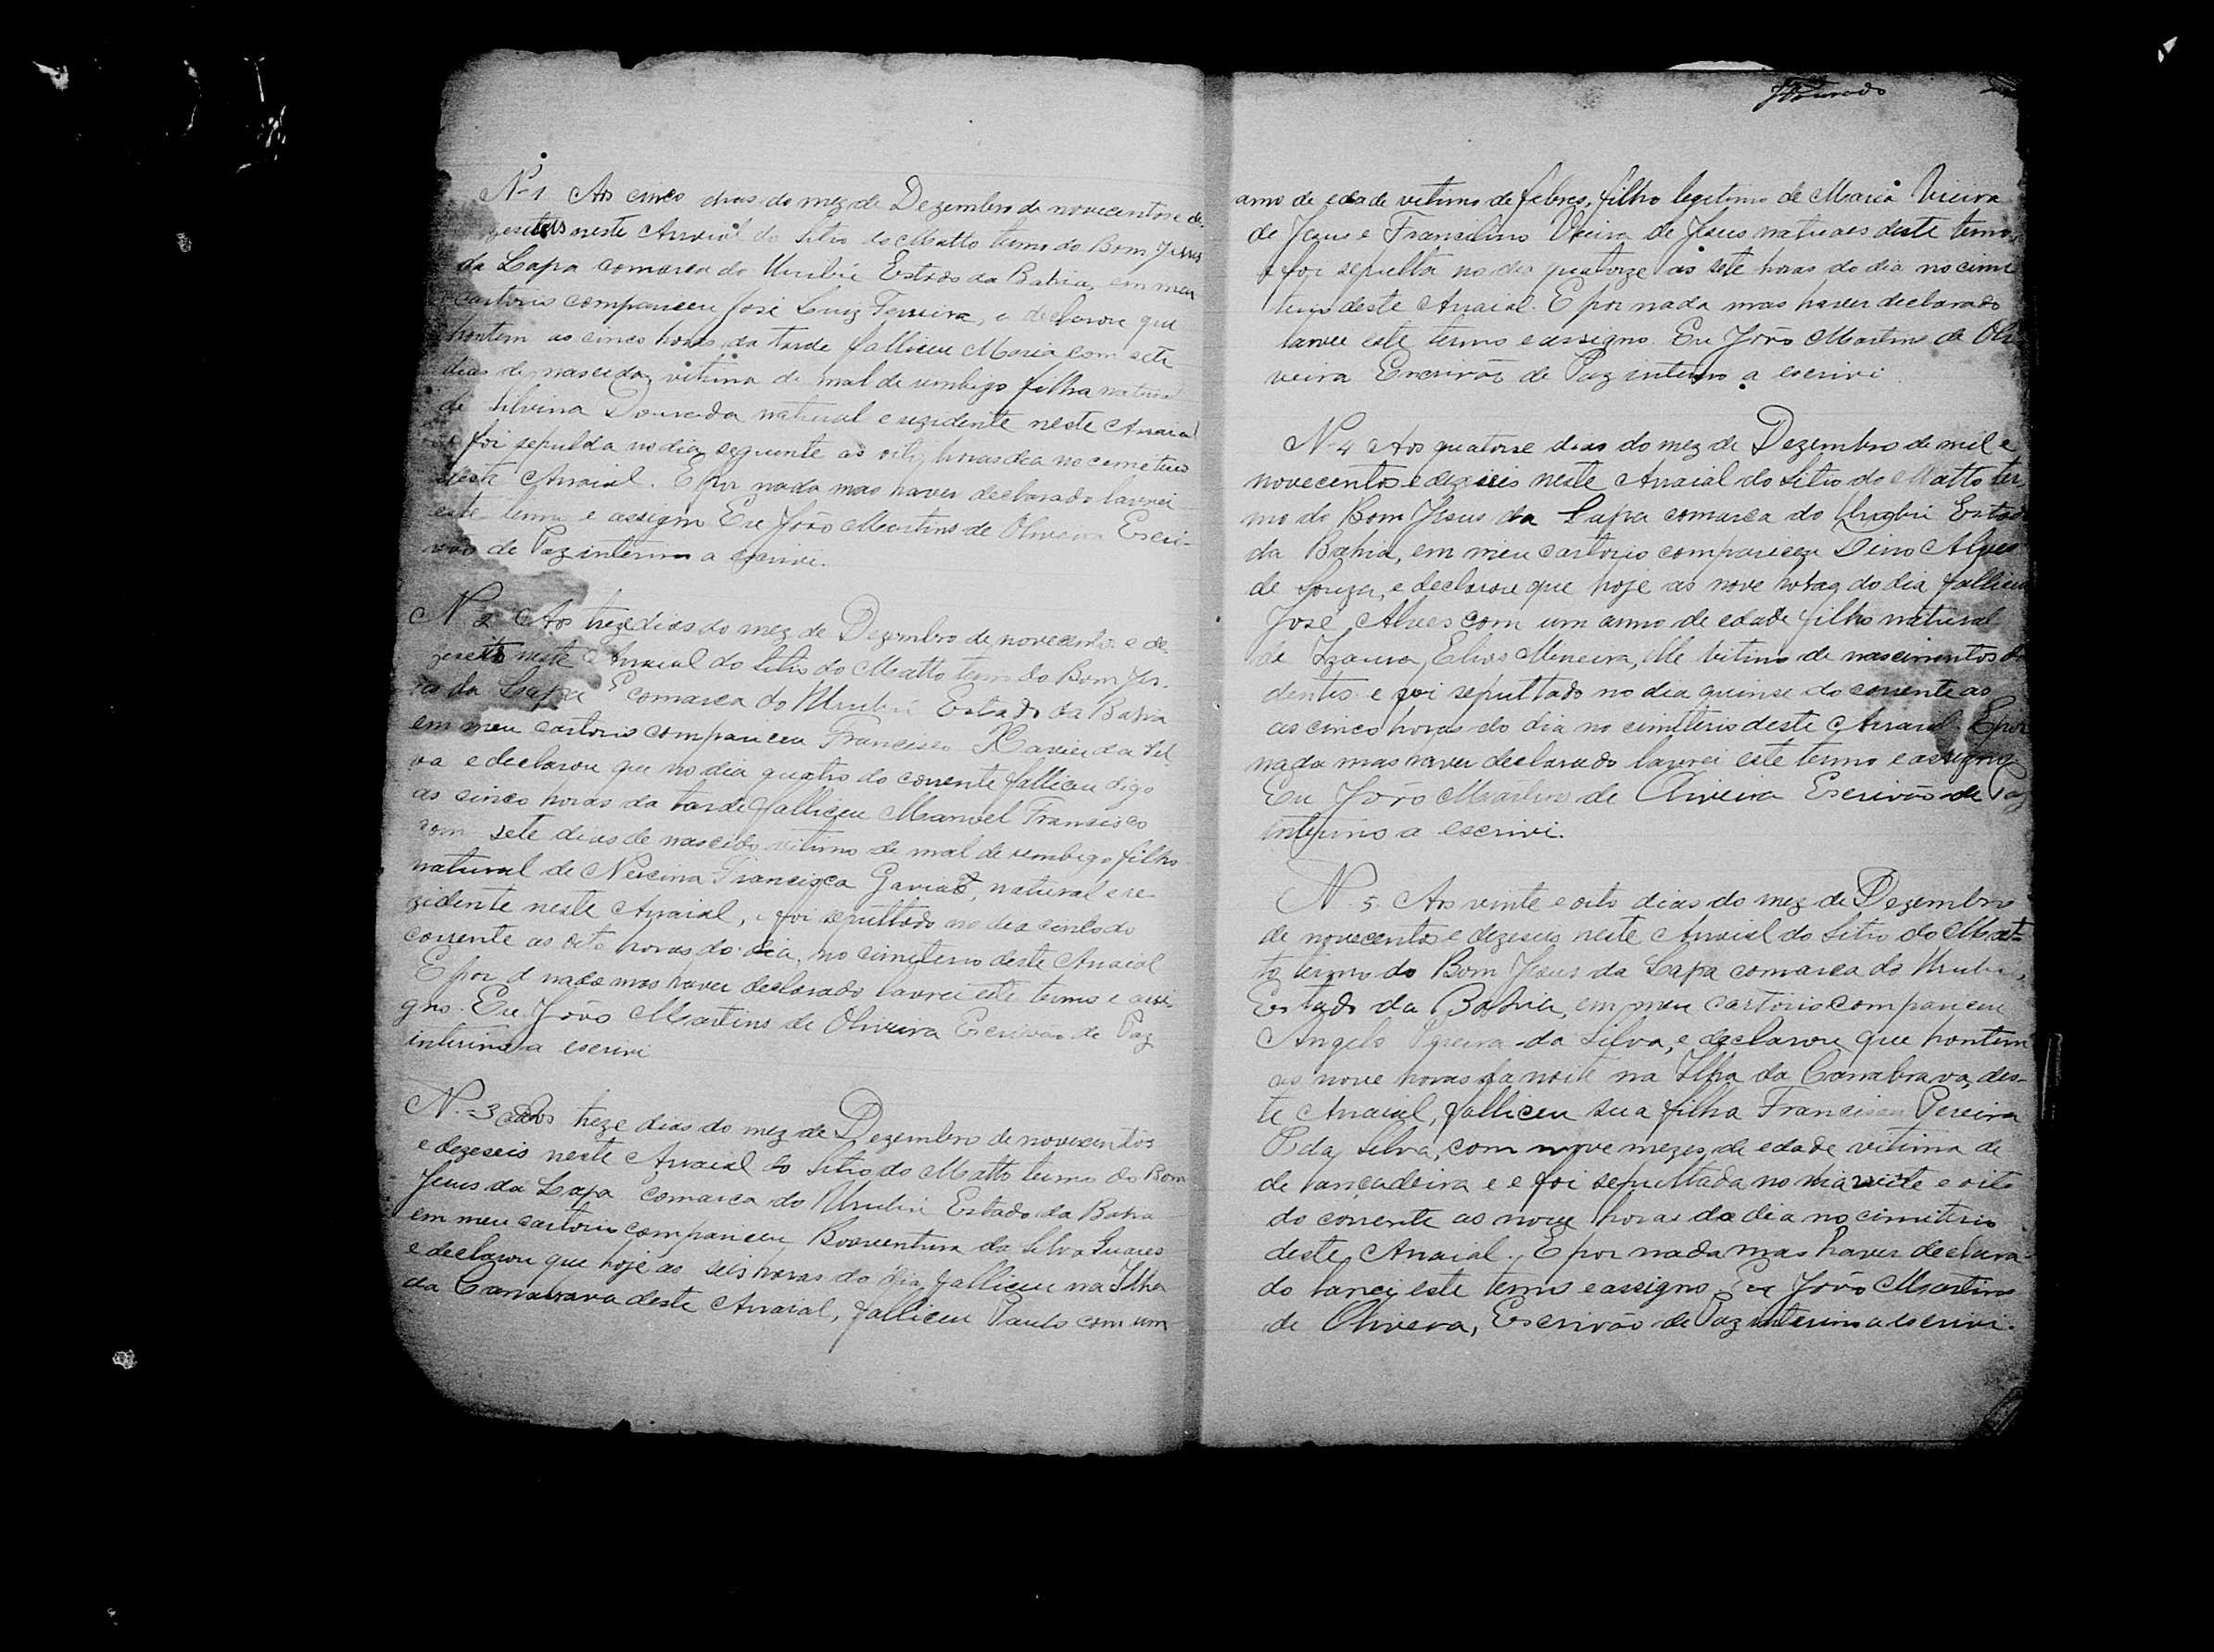 Nº 1 Aos cinco dias do mez de Dezembro de novecentos e de-
neste Arraial do Sitio do Matto termo do Bom Jesus
da Lapa comarca do Urubú Estado da Bahia, em meu
cartorio compareceu José Luiz Ferreira, e declarou que
hontem as cinco horas da tarde falliceu Maria com sete
dias de nascida, vitima de mal de umbigo filha natural
de Silvina Dourada natural e rezidente neste Arraial
foi sepulda no dia seguente as oito horas dia no cemeterio
deste Arraial. E por nada mas haver declarado lavrei
este termo e assigno Eu João Martins de Oliveira Escri-
vão de Paz interino a escrivi.
Nº 2 Aos treze dias do mez de Dezembro de novecentos e de-
neste Arraial do Sitio do Matto termo do Bom Jes-
us da Lapa comarca do Urubú Estado da Bahia
em meu cartorio compariceu Francisco Xavier da Sil-
va e declarou que no dia quatro do corrente falliceu digo
as cinco horas da tarde falliceu Manoel Francisco
com sete dias de nascido vitimo de mal de umbigo filho
natural de Francisca natural e re-
zidente neste Arraial, e foi sepultado no dia cinco do
corrente as oito horas do dia, no cimiterio deste Arraial
E por d nada mas haver declarado lavrei este termo e assi-
gno. Eu João Martins de Oliveira Escrivão de Paz
interino a escrivi
N. 3 Aos treze dias do mez de Dezembro de novecentos
e dezeseis neste Arraial do Sitio do Matto termo do Bom
Jesus da Lapa comarca do Urubú Estado da Bahia
em meu cartorio compariceu Boaventura da Silva Suares
e declarou que hoje as seis horas do dia falliceu na Ilha
da Canabrava deste Arraial, falliceu Paulo com um
Dourado
anno de edade vitimo de febres, filho legitimo de Maria Vieira
de Jesus e Francilino Vieira de Jesus naturaes deste termo,
e foi sepulta no dia quatorze as sete horas do dia no cimi
terio deste Arraial. E por nada mas haver declarado
lavrei este termo e assigno. Eu João Martins de Oli
veira Escrivão de Paz interino a escrivi.
N. 4 Aos quatorse dias do mez de Dezembro de mil e
novecentos e dezaseis neste Arraial do Sitio do Matto ter
mo do Bom Jesus da Lapa comarca do Urubú Estado
da Bahia, em meu cartorio compariceu Dino Alves
de Souza, e declarou que hoje as nove horas do dia falliceu
José Alves com um anno de edade filho natural
de Izaura, vitimo de nascimentos de
dentes e foi sepultado no dia quinse do corrente as
as cinco horas do dia no cimiterio deste Arraial. E por
nada mas haver declarado lavrei este termo e assigno
Eu João Martins de Oliveira Escrivão de Paz
interino a escrivi.
N. 5. Aos vinte e oito dias do mez de Dezembro
de novecentos e dezeseis neste Arraial do Sitio do Mat-
to termo do Bom Jesus da Lapa comarca do Urubú,
Estado da Bahia, em meu cartorio compariceu
Angelo Pereira da Silva, e declarou que hontem
as nove horas da noite na Ilha da Canabrava, des-
te Arraial, falliceu sua filha Francisca Pereira
da Silva, com nove mezes de edade vitima de
de e e foi sepultada no dia vinte e oito
do corrente as nove horas do dia no cimiterio
deste Arraial. E por nada mas haver declara-
do lavrei este termo e assigno. Eu João Martins
de Oliveira, Escrivão de Paz interino a escrivi.